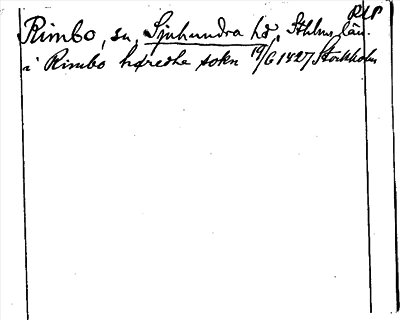 RAP
Rimbo, sn, Sjuhundra hd, Sthlms län.
i Rimbo hæredhe sokn 19/6 1427 Stockholm